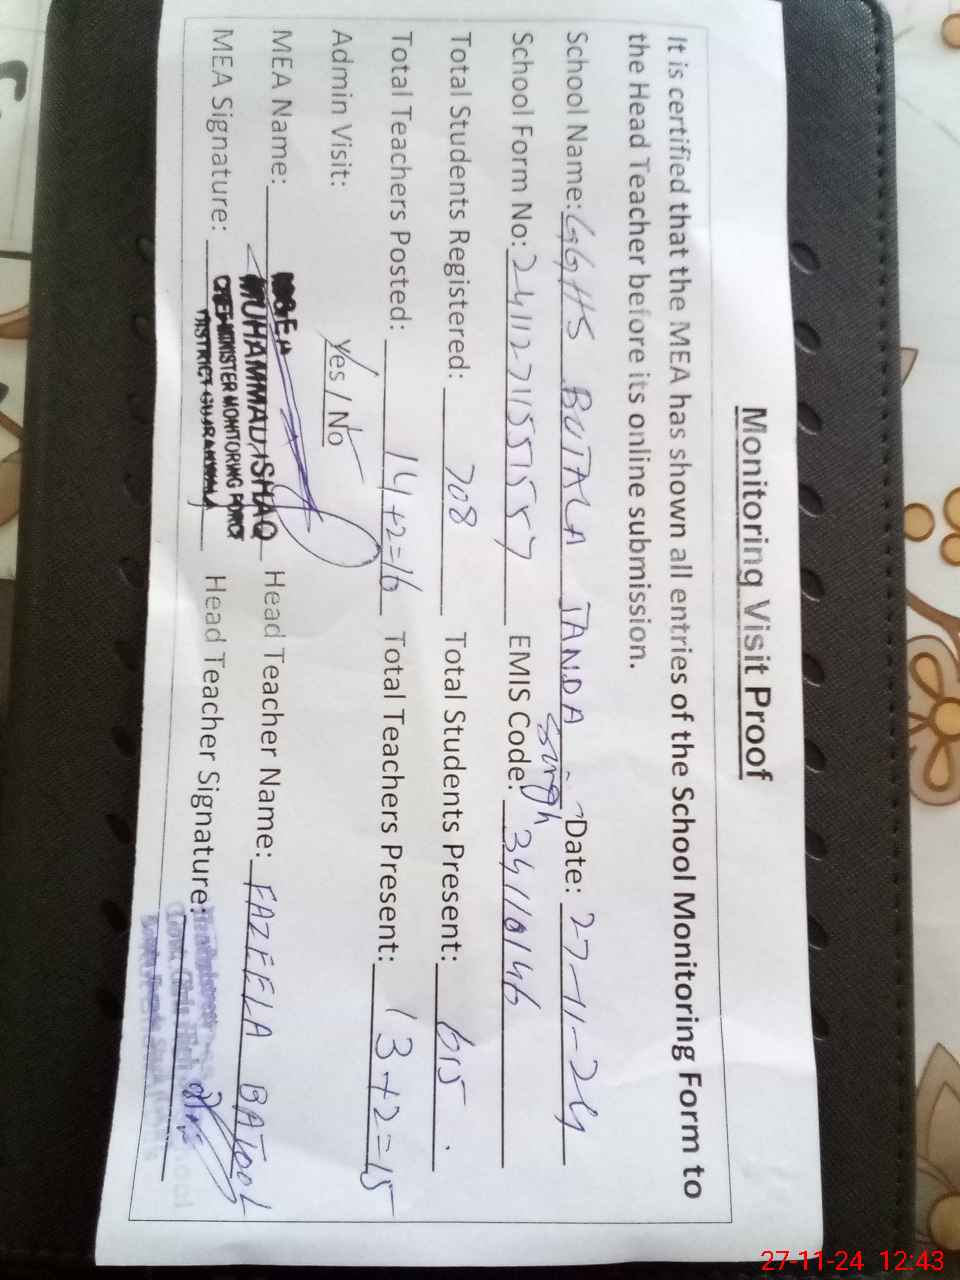 Monitoring Visit Proof
It is certified that the MEA has shown all entries of the School Monitoring Form to
the Head Teacher before its online submission.
School Name: GGHS BUTALA JANDA Singh Date: 27-11-24
School Form No: 2411271155157 EMIS Code: 34110146
Total Students Registered: 708 Total Students Present: 615
Total Teachers Posted: 14+2=16 Total Teachers Present: 13+2=15
Admin Visit: Yes / No
MEA Name: MUHAMMAD ISHAQ Head Teacher Name: FAZEELA BATOOL
MEA Signature: CHIEF MINISTER MONITORING FORCE Head Teacher Signature:
DISTRICT GUJRANWALA
27-11-24 12:43